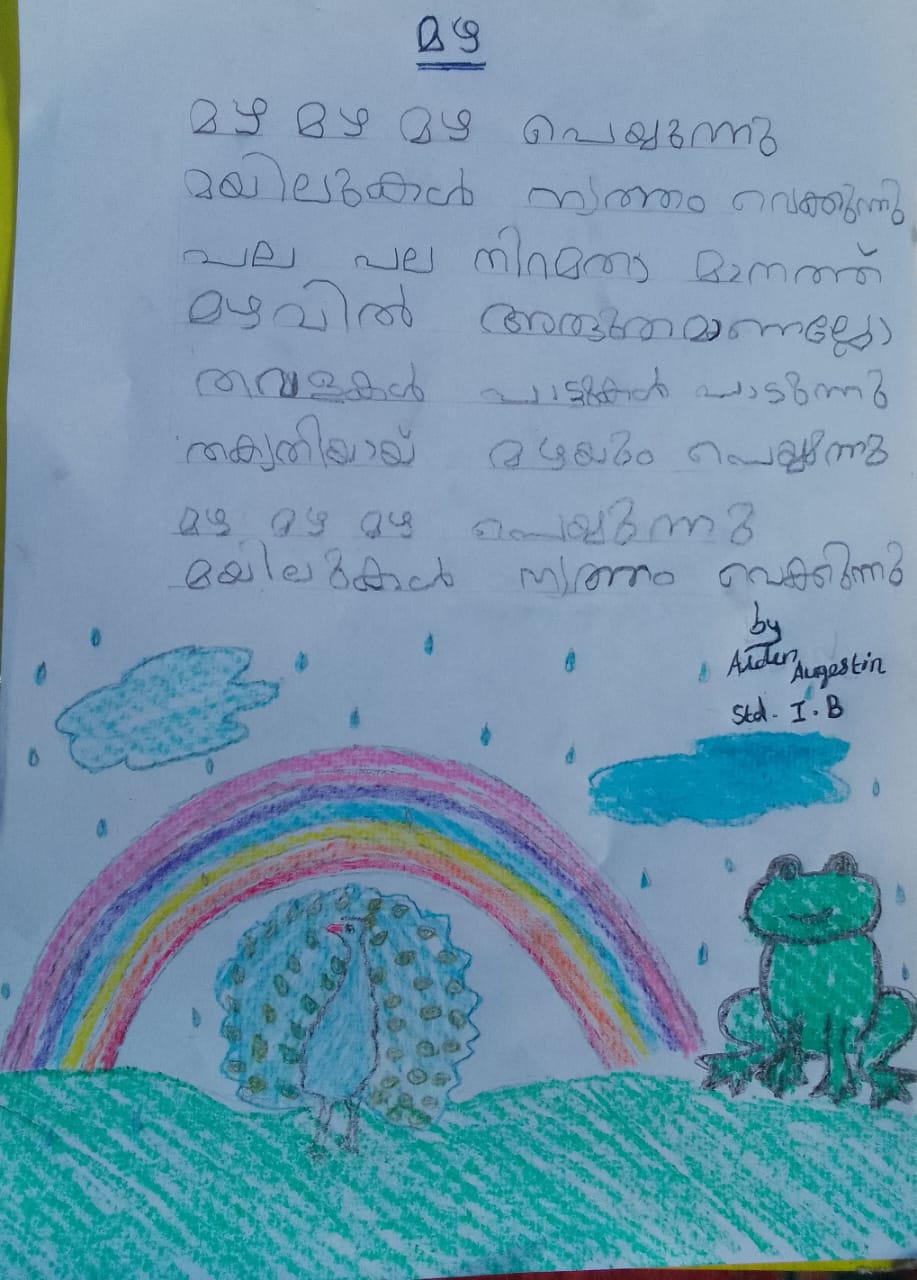 മഴ
മഴ മഴ മഴ പെയ്യുന്നു
മയിലുകൾ നൃത്തം വെക്കുന്നു
പല പല നിറമതാ മാനത്ത്
മഴവിൽ അത്ഭുതമാണല്ലോ
തവളകൾ പാട്ടുകൾ പാടുന്നു
തകൃതിയായ് മഴയും പെയ്യുന്നു
മഴ മഴ മഴ പെയ്യുന്നു
മയിലുകൾ നൃത്തം വെക്കുന്നു
by
Aiden Augestin
Std - I. B